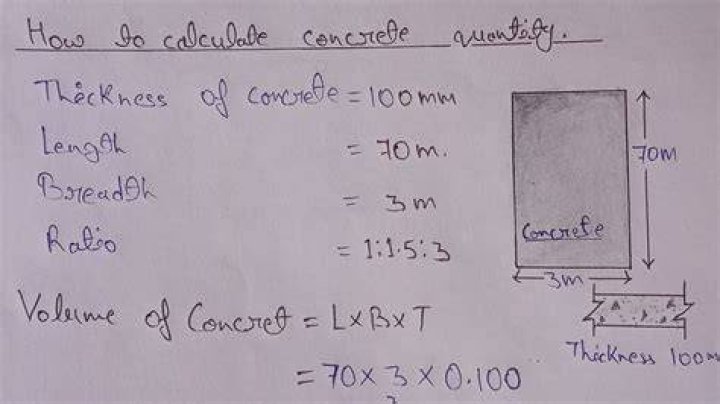 How to calculate concrete quantity.
Thickness of concrete = 100mm
Length = 70m.
Breadth = 3m
Ratio = 1:1.5:3
70m
Concrete
3m
Thickness 100m
Volume of Concret = L×B×T
= 70 × 3 × 0.100